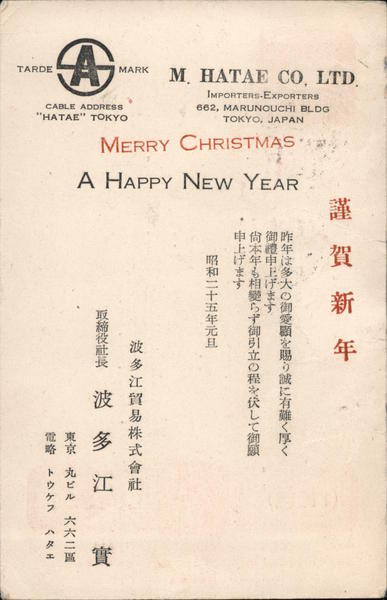 TARDE MARK
SA
CABLE ADDRESS
"HATAE" TOKYO
M. HATAE CO., LTD.
IMPORTERS-EXPORTERS
662, MARUNOUCHI BLDG
TOKYO, JAPAN
MERRY CHRISTMAS
A HAPPY NEW YEAR
謹賀新年
昨年は多大の御愛顧を賜り誠に有難く厚く
御禮申上げます
尙本年も相變らず御引立の程を伏して御願
申上げます
昭和二十五年元旦
波多江貿易株式會社
取締役社長 波多江實
東京 丸ビル 六六二區
電略 トウケフ ハタエ